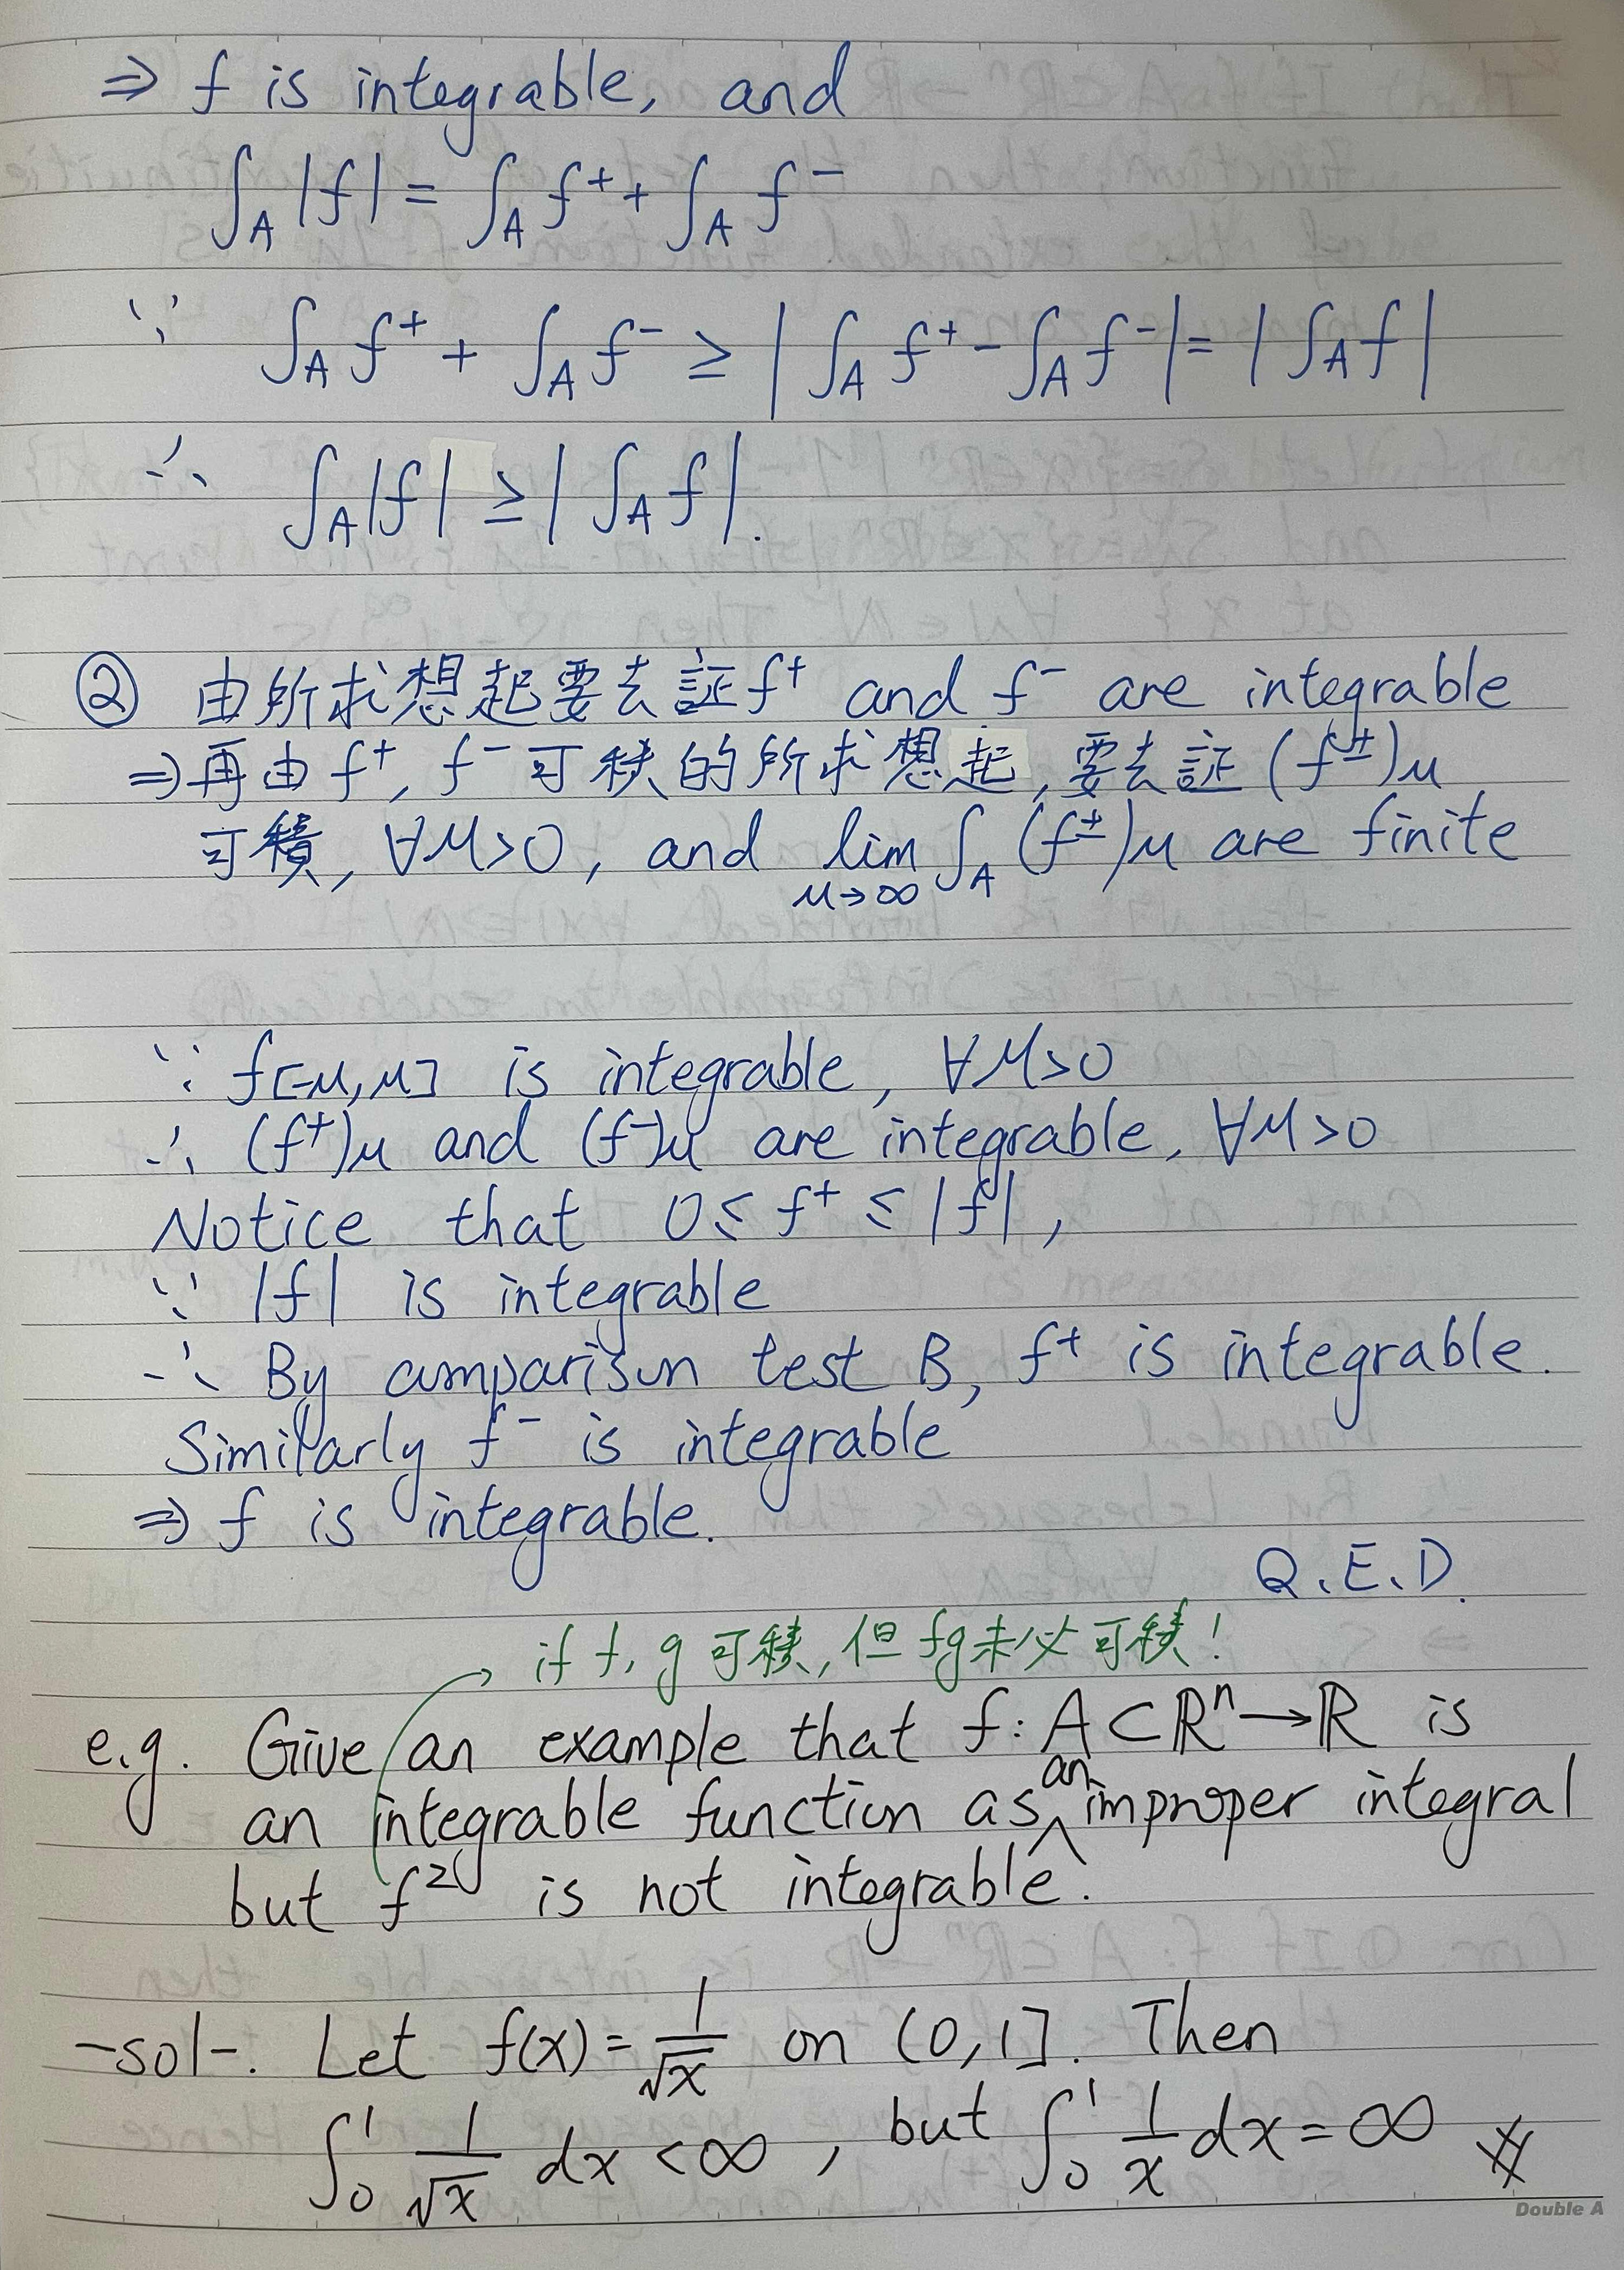 ⇒ f is integrable, and
∫_A |f| = ∫_A f⁺ + ∫_A f⁻
∵ ∫_A f⁺ + ∫_A f⁻ ≥ | ∫_A f⁺ - ∫_A f⁻ | = | ∫_A f |
∴ ∫_A |f| ≥ | ∫_A f |.
② 由所求想起要去証 f⁺ and f⁻ are integrable
⇒ 再由 f⁺, f⁻ 可積的所求想起, 要去証 (f^±)_M
可積, ∀M>0, and lim_{M→∞} ∫_A (f^±)_M are finite
∵ f_[-M,M] is integrable, ∀M>0
∴ (f⁺)_M and (f⁻)_M are integrable, ∀M>0
Notice that 0 ≤ f⁺ ≤ |f|,
∵ |f| is integrable
∴ By comparison test B, f⁺ is integrable.
Similarly f⁻ is integrable
⇒ f is integrable.
Q.E.D.
→ if f, g 可積, 但 fg 未必可積!
e.g. Give an example that f: A⊂ℝⁿ→ℝ is
an integrable function as an improper integral
but f² is not integrable.
-sol-. Let f(x) = 1/√x on (0,1]. Then
∫₀¹ 1/√x dx < ∞, but ∫₀¹ 1/x dx = ∞ #
Double A